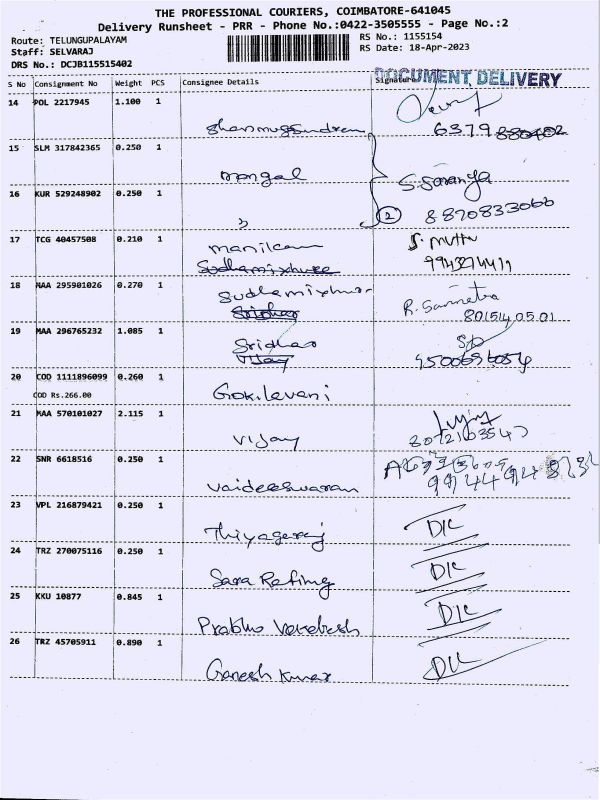 THE PROFESSIONAL COURIERS, COIMBATORE-641045
Delivery Runsheet - PRR - Phone No.:0422-3505555 - Page No.:2
Route: TELUNGUPALAYAM
RS No.: 1155154
Staff: SELVARAJ
RS Date: 18-Apr-2023
DRS No.: DCJB115515402
DOCUMENT DELIVERY
S No Consignment No Weight PCS Consignee Details Signature
14 POL 2217945 1.100 1
Shanmugsundram 6379
15 SLM 317842365 0.250 1
mongal S. Saranya
16 KUR 529248902 0.250 1
" 2 8870833060
17 TCG 40457508 0.210 1 S. muttu
manikam
Sudhamixhuree
18 MAA 295901026 0.270 1
Sudhamixhur
Sridhar 8015140501
19 MAA 296765232 1.085 1
Sridhar
Vijay
20 COD 1111896099 0.260 1
COD Rs.266.00 Gokilavani
21 MAA 570101027 2.115 1
Vijay
22 SNR 6618516 0.250 1
Vaideeswaran
23 VPL 216879421 0.250 1
Thiyagaraj D/L
24 TRZ 270075116 0.250 1
Sara Refimg D/L
25 KKU 10877 0.845 1
Prabhu D/L
26 TRZ 45705911 0.890 1
Ganesh Kumar D/L